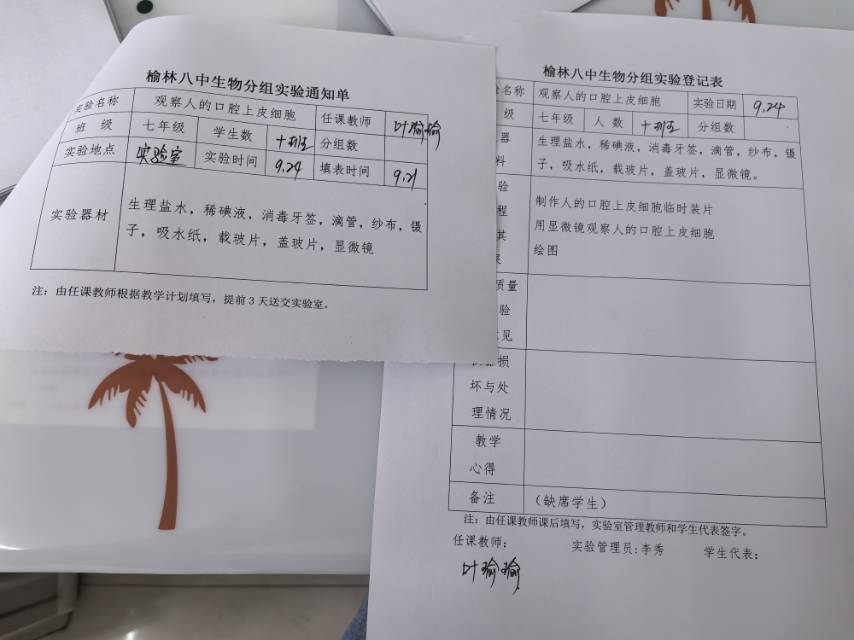 榆林八中生物分组实验通知单
实验名称 观察人的口腔上皮细胞 任课教师 叶瑜瑜
班 级 七年级 学生数 十班 分组数
实验地点 实验室 实验时间 9.24 填表时间 9.21
实验器材 生理盐水，稀碘液，消毒牙签，滴管，纱布，镊
子，吸水纸，载玻片，盖玻片，显微镜
注：由任课教师根据教学计划填写，提前 3 天送交实验室。
榆林八中生物分组实验登记表
名称 观察人的口腔上皮细胞 实验日期 9.24
级 七年级 人 数 十班 分组数
器 生理盐水，稀碘液，消毒牙签，滴管，纱布，镊
料 子，吸水纸，载玻片，盖玻片，显微镜。
验 制作人的口腔上皮细胞临时装片
程 用显微镜观察人的口腔上皮细胞
其 绘图
质量
验
见
损
坏与处
理情况
教学
心得
备注 （缺席学生）
注：由任课教师课后填写，实验室管理教师和学生代表签字。
任课教师： 实验管理员：李秀 学生代表：
叶瑜瑜